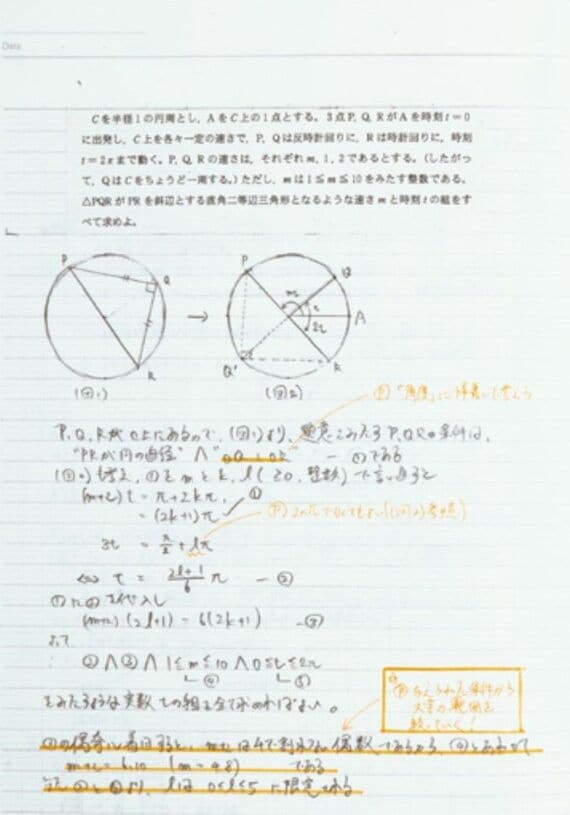 Date
Cを半径1の円周とし，AをC上の1点とする。3点P，Q，RがAを時刻t＝0
に出発し，C上を各々一定の速さで，P，Qは反時計回りに，Rは時計回りに，時刻
t＝2πまで動く。P，Q，Rの速さは，それぞれm，1，2であるとする。(したがっ
て，QはCをちょうど一周する。)ただし，mは1≦m≦10をみたす整数である。
△PQRがPRを斜辺とする直角二等辺三角形となるような速さmと時刻tの組をす
べて求めよ。
P
Q
R
(図1)
→
P
Q
mt
t
2t
A
Q'
R
(図2)
「角度」に
P，Q，RがC上にあるので，(図1)より，題意をみたすP，Q，Rの条件は，
"PRが円の直径" ∧ － ①である
(m+2)t = π+2kπ
= (2k+1)π
3t = π/2 + lπ
⇔ t = 2l+1/6 π －②
①に②を代入し
(m+2)(2l+1) = 6(2k+1) －③
よって
②∧③∧1≦m≦10∧0≦t≦2π
④ ⑤
をみたすような の組を全て求めればよい。
与えられた条件から
文字の範囲を
絞っていく!
③の偶奇に着目すると，m+2は4で割れない偶数であるから，④とあわせて
m+2=6,10 (m=4,8) である
また より，lは 0≦l≦5に限定される